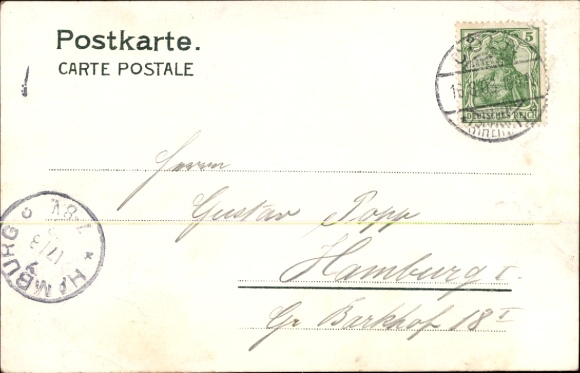 Postkarte.
CARTE POSTALE
5
DEUTSCHES REICH
Herrn
Gustav Popp
Hamburg
Gr Barkhof 18 I
HAMBURG
7-8V.